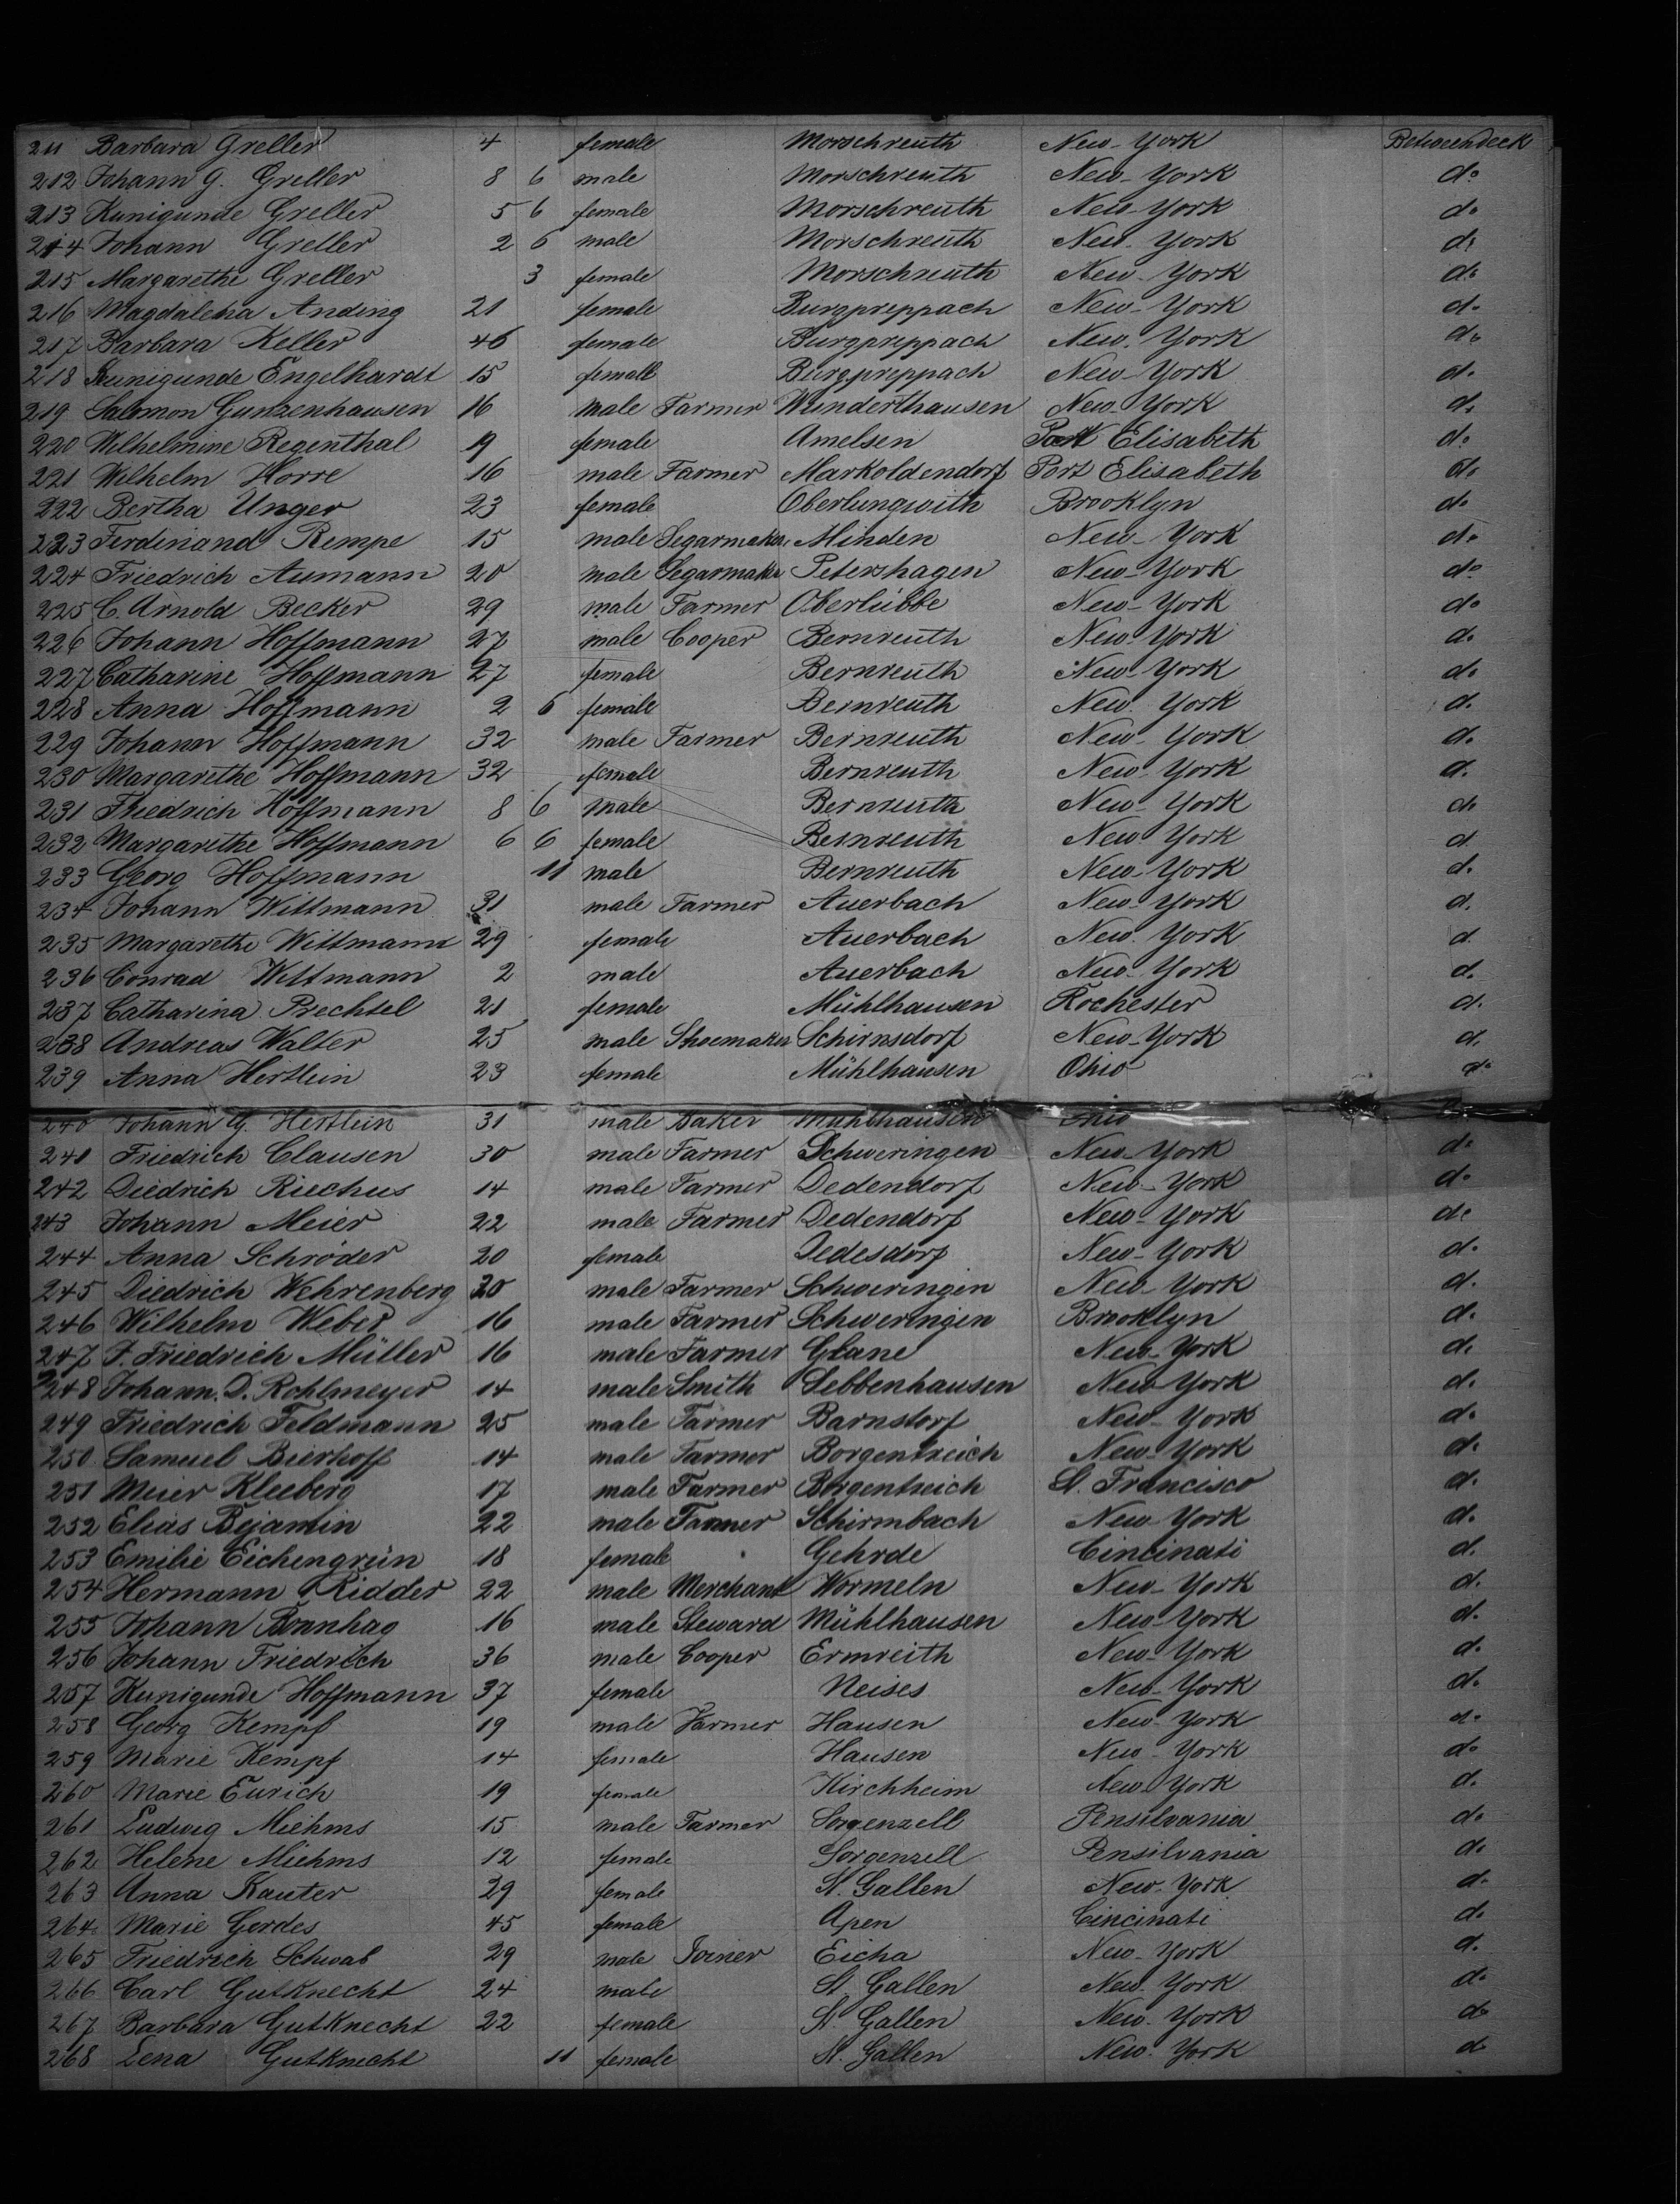 211 Barbara Greller 4 female Morschreuth New-York Betweendeck
212 Johann G. Greller 8 6 male Morschreuth New-York do
213 Kunigunde Greller 5 6 female Morschreuth New-York do
214 Johann Greller 2 6 male Morschreuth New-York do
215 Margarethe Greller 3 female Morschreuth New-York do
216 Magdalena Anding 21 female Burgpreppach New-York do
217 Barbara Keller 46 female Burgpreppach New-York do
218 Kunigunde Engelhardt 15 female Burgpreppach New-York do
219 Salomon Gunzenhausen 16 male Farmer New-York do
220 Wilhelmine Regenthal 19 female Amelsen Port Elisabeth do
221 Wilhelm Horre 16 male Farmer Markoldendorf Port Elisabeth do
222 Bertha Unger 23 female Oberlungwith Brooklyn do
223 Ferdinand Rempe 15 male Segarmaker Minden New-York do
224 Friedrich Aumann 20 male Segarmaker Petershagen New-York do
225 C. Arnold Becker 29 male Farmer Oberlübbe New-York do
226 Johann Hoffmann 27 male Cooper Bernreuth New-York do
227 Catharine Hoffmann 27 female Bernreuth New-York do
228 Anna Hoffmann 2 6 female Bernreuth New-York d.
229 Johann Hoffmann 32 male Farmer Bernreuth New-York do
230 Margarethe Hoffmann 32 female Bernreuth New-York d.
231 Friedrich Hoffmann 8 6 male Bernreuth New-York do
232 Margarethe Hoffmann 6 6 female Bernreuth New-York d
233 Georg Hoffmann 11 male Bernreuth New-York d.
234 Johann Wittmann 31 male Farmer Auerbach New-York d.
235 Margarethe Wittmann 29 female Auerbach New-York d.
236 Conrad Wittmann 2 male Auerbach New-York d.
237 Catharina Prechtel 21 female Mühlhausen Rochester d.
238 Andreas Walter 25 male Shoemaker Schirnsdorf New-York d.
239 Anna Hertlein 23 female Mühlhausen Ohio do
240 Johann G. Hertlein 31 male Baker Mühlhausen Ohio
241 Friedrich Clausen 30 male Farmer Schweringen New-York do
242 Diedrich Riechus 14 male Farmer Dedendorf New-York do
243 Johann Meier 22 male Farmer Dedendorf New-York do
244 Anna Schröder 20 female Dedesdorf New-York d.
245 Diedrich Wehrenberg 20 male Farmer Schweringen New-York d.
246 Wilhelm Weber 16 male Farmer Schweringen Brooklyn d.
247 F. Friedrich Müller 16 male Farmer Glane New-York d.
248 Johann D. Rohlmeyer 14 male Smith Sebbenhausen New-York d.
249 Friedrich Feldmann 25 male Farmer Barnstorf New-York d.
250 Samuel Bierhoff 14 male Farmer Borgentreich New-York d.
251 Meier Kleeberg 17 male Farmer Borgentreich St. Francisco d.
252 Elias Bejamin 22 male Farmer Schirmbach New-York d.
253 Emilie Eichengrün 18 female Gehrde Cincinati d.
254 Hermann Ridder 22 male Merchant Wormeln New-York d.
255 Johann Bonnhag 16 male Steward Mühlhausen New-York d.
256 Johann Friedrich 36 male Cooper Ermreith New-York d.
257 Kunigunde Hoffmann 37 female Neises New-York d.
258 Georg Kempf 19 male Farmer Hausen New-York d.
259 Marie Kempf 14 female Hausen New-York do
260 Marie Eurich 19 female Kirchheim New-York d.
261 Ludwig Miehms 15 male Farmer Sorgenzell Pensilvania do
262 Helene Miehms 12 female Sorgenzell Pensilvania d.
263 Anna Kauter 29 female St. Gallen New-York d.
264 Marie Gerdes 45 female Apen Cincinati d.
265 Friedrich Schwab 29 male Joiner Eicha New-York d.
266 Carl Gutknecht 24 male St. Gallen New-York do
267 Barbara Gutknecht 22 female St. Gallen New-York do
268 Lena Gutknecht 11 female St. Gallen New-York d